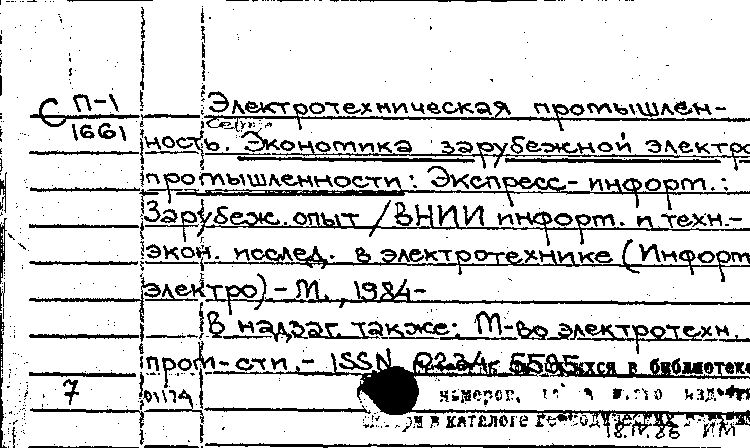 С П-1
1661
Электротехническая промышлен-
Серия
ность. Экономика зарубежной электро
промышленности: Экспресс-информ.:
Заруδеж. опыт / ВНИИ информ. и техн.-
экон. исслед. в электротехнике (Информ
электро) - М., 1984-
В надзаг. также: М-во электротехн.
пром-сти. - ISSN 0234-5595
хся в библиотеке
7
01174
номеров,
в каталоге периодических
18.IV.86 ИМ